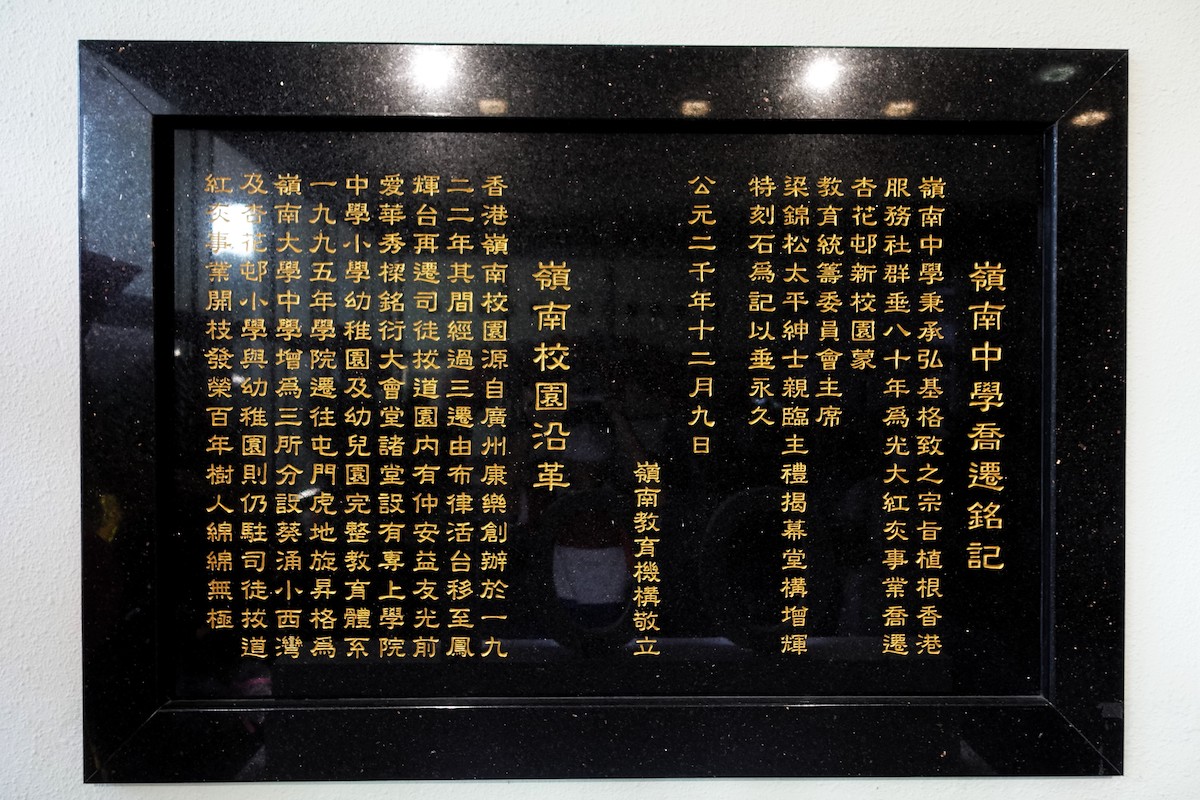 嶺南中學喬遷銘記
嶺南中學秉承弘基格致之宗旨植根香港
服務社群垂八十年爲光大紅灰事業喬遷
杏花邨新校園蒙
教育統籌委員會主席
梁錦松太平紳士親臨主禮揭幕堂構增輝
特刻石爲記以垂永久
公元二千年十二月九日
嶺南教育機構敬立
嶺南校園沿革
香港嶺南校園源自廣州康樂創辦於一九
二二年其間經過三遷由布律活台移至鳳
輝台再遷司徒拔道園內有仲安益友光前
愛華秀樑銘衍大會堂諸堂設有專上學院
中學小學幼稚園及幼兒園完整教育體系
一九九五年學院遷往屯門虎地旋昇格爲
嶺南大學中學增爲三所分設葵涌小西灣
及杏花邨小學與幼稚園則仍駐司徒拔道
紅灰事業開枝發榮百年樹人綿綿無極